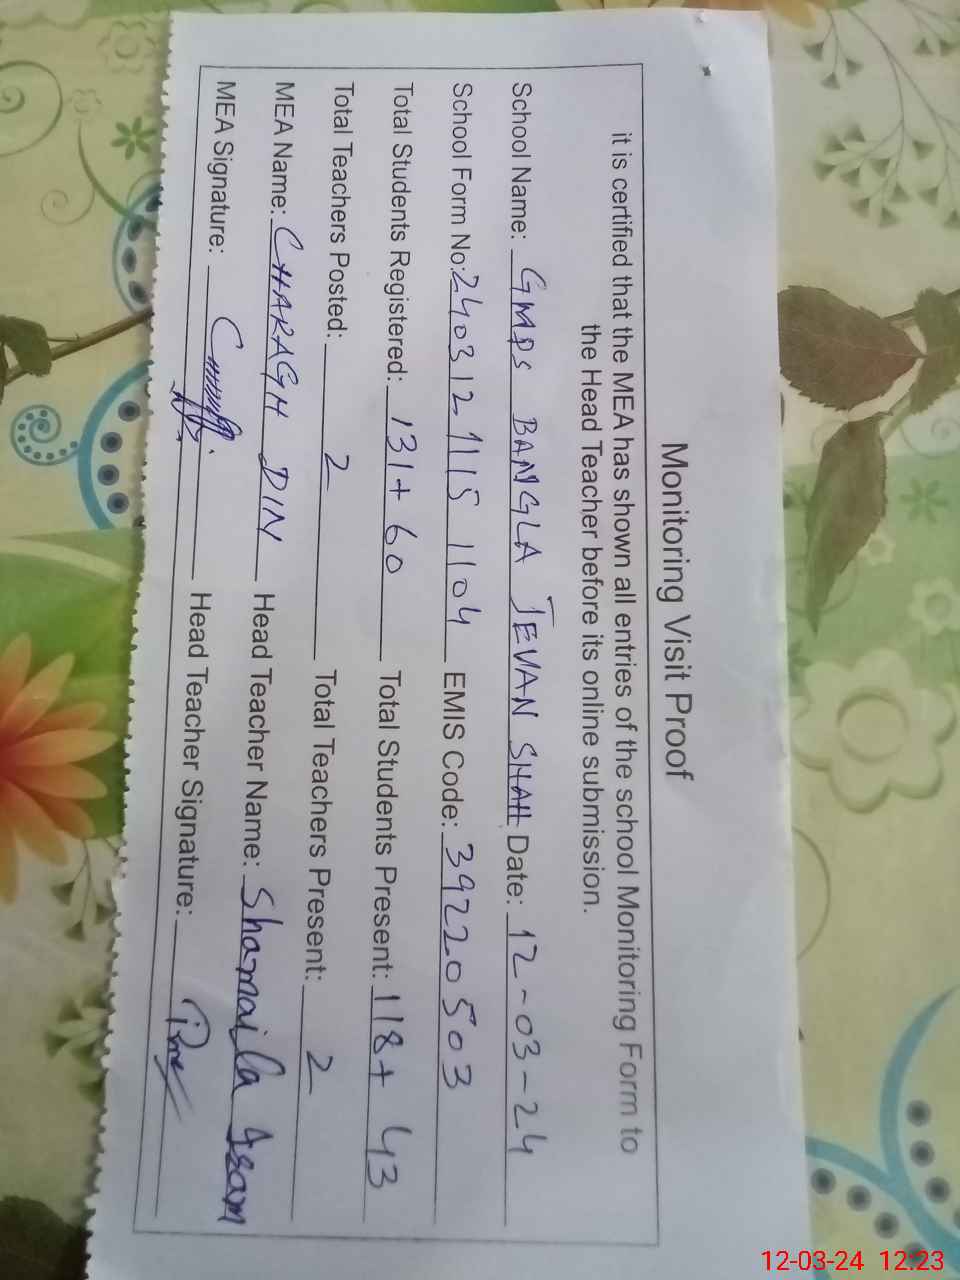 Monitoring Visit Proof
it is certified that the MEA has shown all entries of the school Monitoring Form to
the Head Teacher before its online submission.
School Name: GMPS BANGLA JEVAN SHAH Date: 12-03-24
School Form No: 2403121115 1104 EMIS Code: 39220503
Total Students Registered: 131+60 Total Students Present: 118+ 43
Total Teachers Posted: 2 Total Teachers Present: 2
MEA Name: CHARAGH DIN Head Teacher Name: Shamaila
MEA Signature: Head Teacher Signature:
12-03-24 12:23